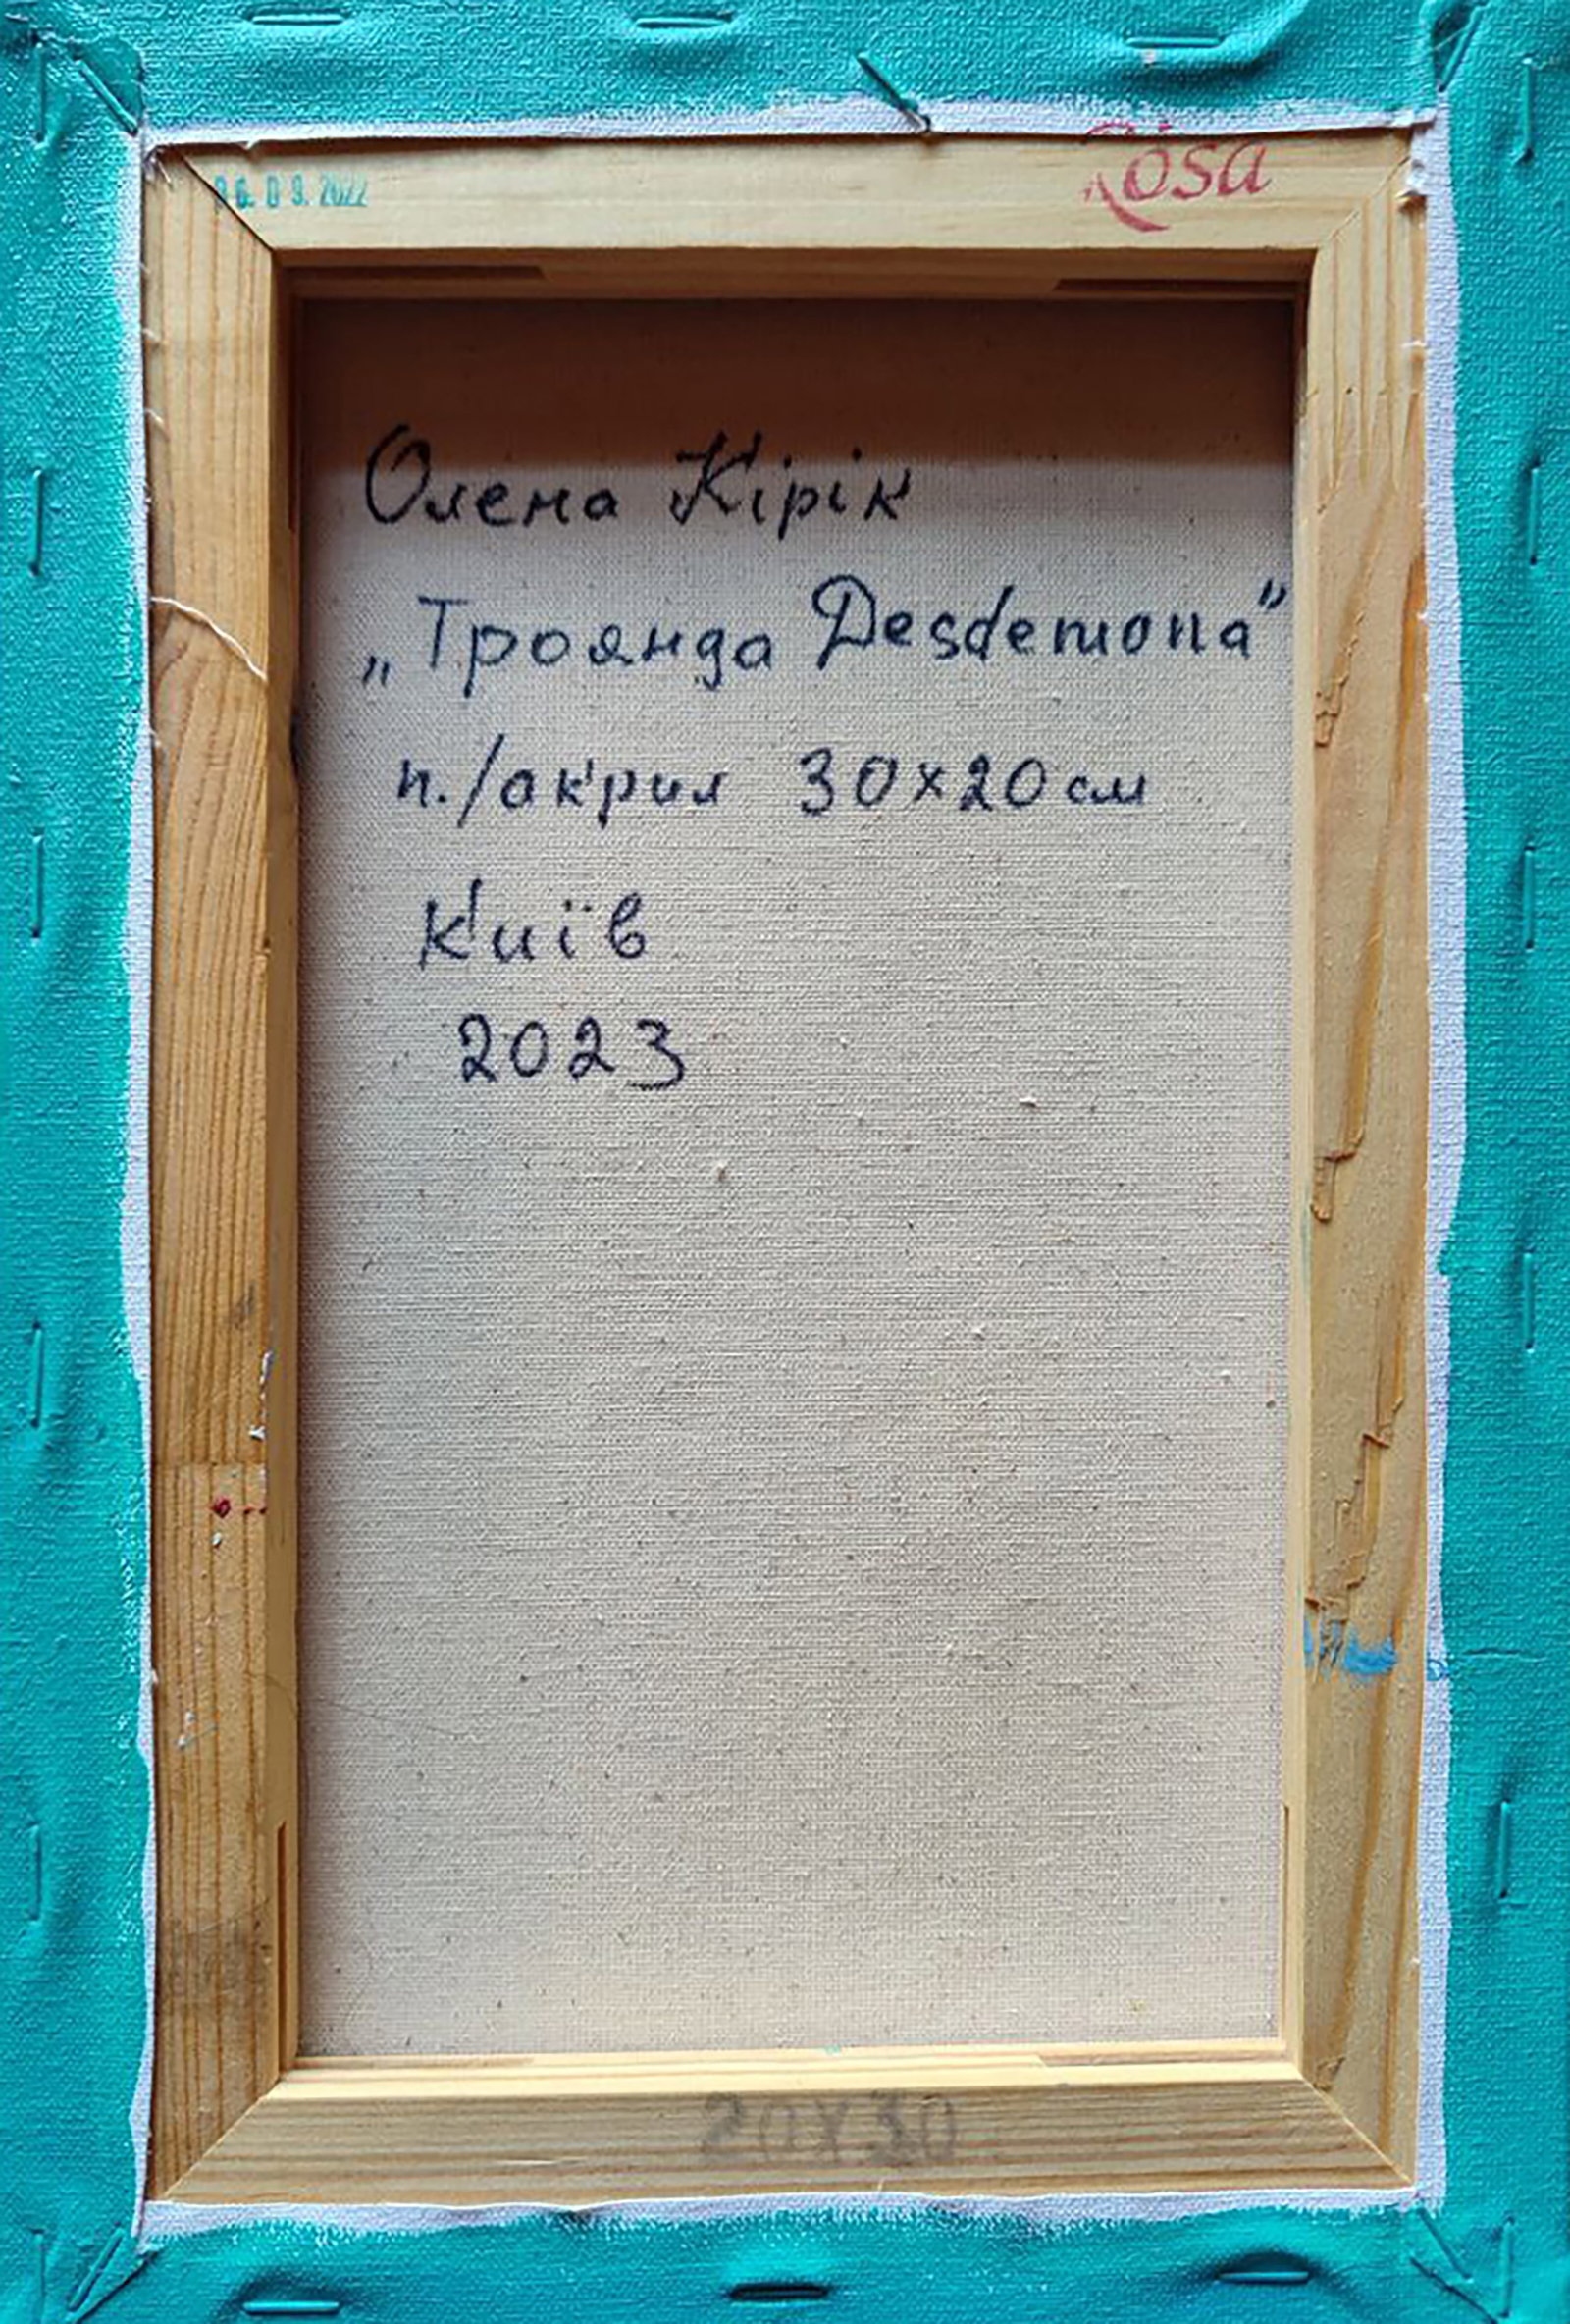 Rosa
Олена Кірік
„Троянда Desdemona”
п./акрил 30х20см
Київ
2023
20X30